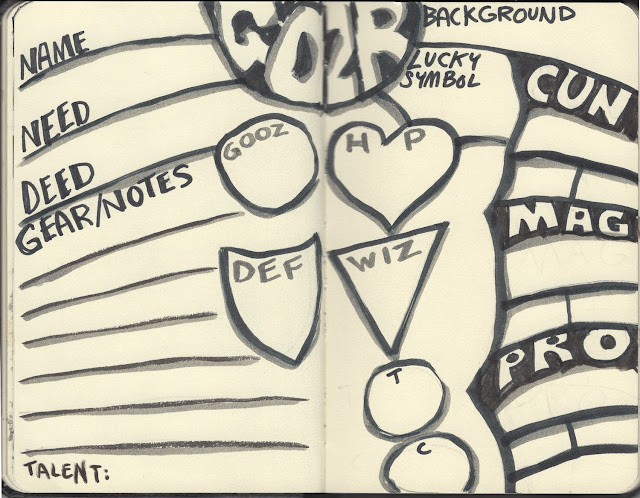 GOZR
NAME
NEED
DEED
GEAR/NOTES
TALENT:
GOOZ
HP
DEF
WIZ
T
C
BACKGROUND
LUCKY
SYMBOL
CUN
MAG
PRO